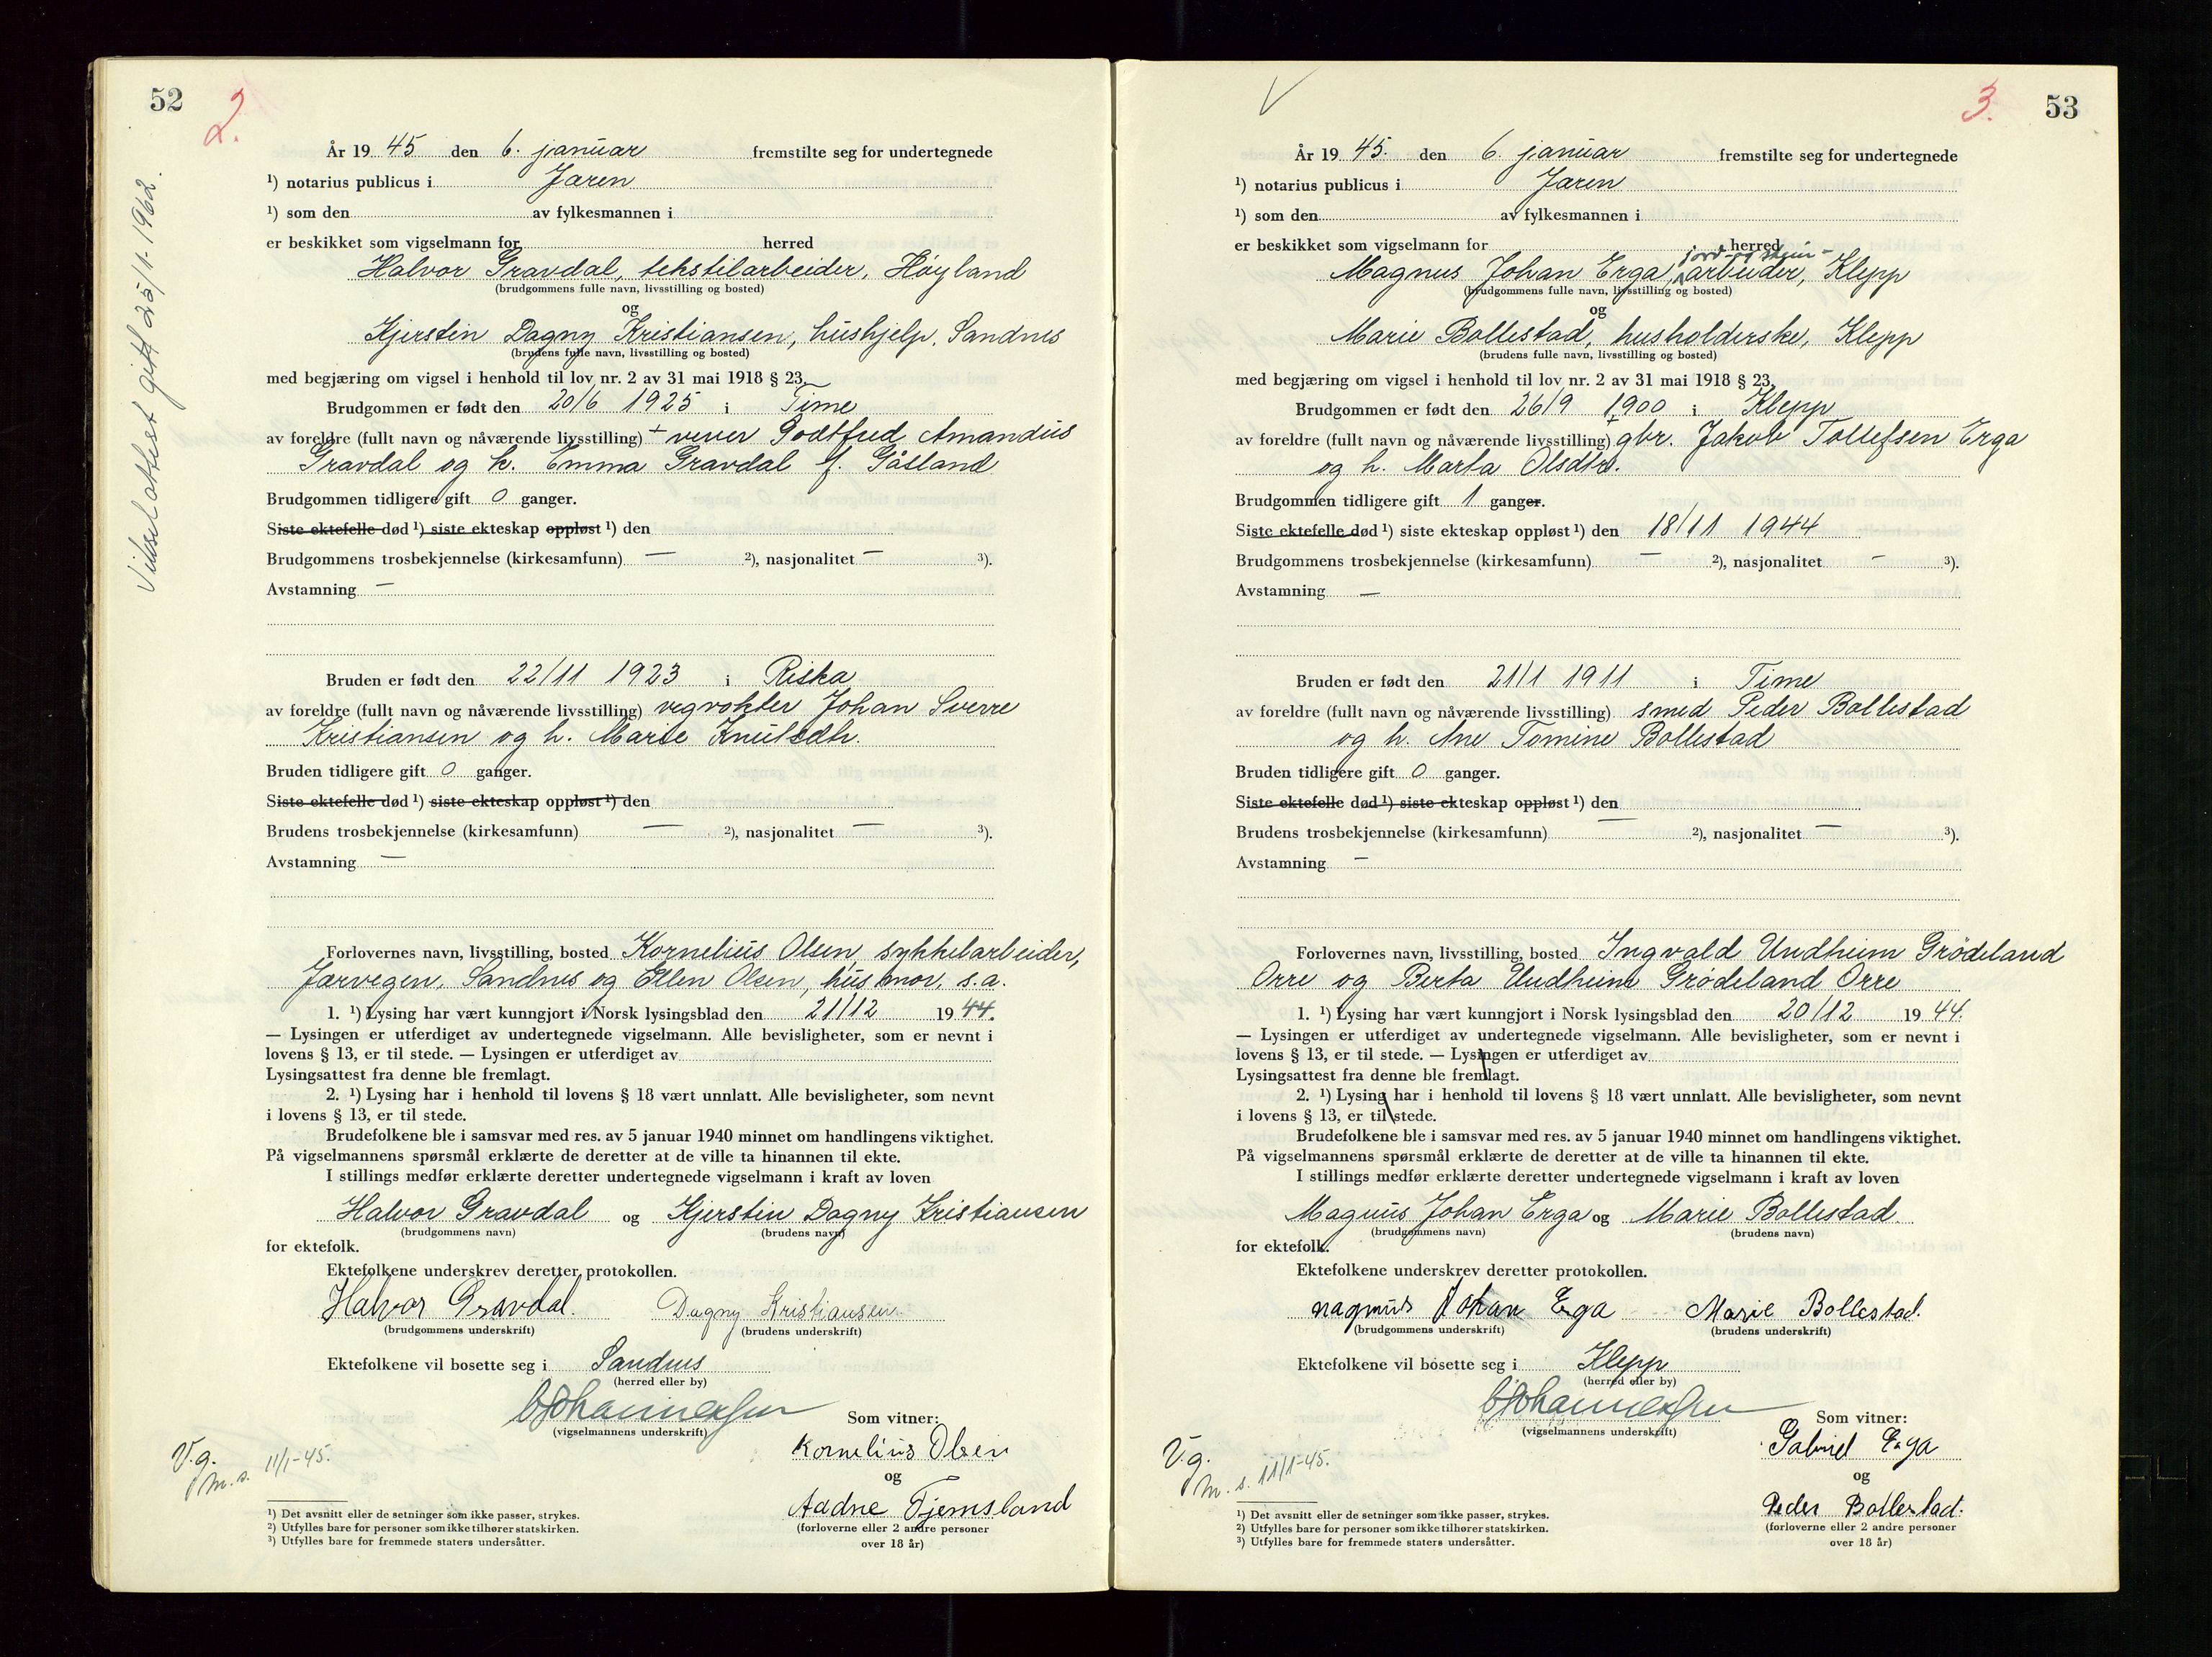 52
2.
Vielsesattest gitt 25/1-1962.
År 19 45 den 6. januar fremstilte seg for undertegnede
¹) notarius publicus i Jæren
¹) som den av fylkesmannen i
er beskikket som vigselmann for herred
Halvor Gravdal, tekstilarbeider, Høyland
(brudgommens fulle navn, livsstilling og bosted)
og
Kjerstin Dagny Kristiansen, hushjelp, Sandnes
(brudens fulle navn, livsstilling og bosted)
med begjæring om vigsel i henhold til lov nr. 2 av 31 mai 1918 § 23.
Brudgommen er født den 20/6 1925 i Time
av foreldre (fullt navn og nåværende livsstilling) + vever Godtfred Amandus
Gravdal og h. Emma Gravdal f. Gåsland
Brudgommen tidligere gift 0 ganger.
Siste ektefelle død ¹) siste ekteskap oppløst ¹) den
Brudgommens trosbekjennelse (kirkesamfunn) — ²), nasjonalitet — ³).
Avstamning —
Bruden er født den 22/11 1923 i Riska
av foreldre (fullt navn og nåværende livsstilling) vegvokter Johan Sverre
Kristiansen og h. Marie Knutsdtr.
Bruden tidligere gift 0 ganger.
Siste ektefelle død ¹) siste ekteskap oppløst ¹) den
Brudens trosbekjennelse (kirkesamfunn) — ²), nasjonalitet — ³).
Avstamning —
Forlovernes navn, livsstilling, bosted Kornelius Olsen, sykkelarbeider,
Jærvegen, Sandnes og Ellen Olsen, husmor, s.a.
1. ¹) Lysing har vært kunngjort i Norsk lysingsblad den 21/12 19 44.
— Lysingen er utferdiget av undertegnede vigselmann. Alle bevisligheter, som er nevnt i
lovens § 13, er til stede. — Lysingen er utferdiget av
Lysingsattest fra denne ble fremlagt.
2. ¹) Lysing har i henhold til lovens § 18 vært unnlatt. Alle bevisligheter, som nevnt
i lovens § 13, er til stede.
Brudefolkene ble i samsvar med res. av 5 januar 1940 minnet om handlingens viktighet.
På vigselmannens spørsmål erklærte de deretter at de ville ta hinannen til ekte.
I stillings medfør erklærte deretter undertegnede vigselmann i kraft av loven
Halvor Gravdal og Kjerstin Dagny Kristiansen
(brudgommens navn) (brudens navn)
for ektefolk.
Ektefolkene underskrev deretter protokollen.
Halvor Gravdal. Dagny Kristiansen.
(brudgommens underskrift) (brudens underskrift)
Ektefolkene vil bosette seg i Sandnes
(herred eller by)
(vigselmannens underskrift)
Som vitner:
Kornelius Olsen
og
Aadne Tjemsland
(forloverne eller 2 andre personer
over 18 år)
V.g.
m. s. 11/1-45.
¹) Det avsnitt eller de setninger som ikke passer, strykes.
²) Utfylles bare for personer som ikke tilhører statskirken.
³) Utfylles bare for fremmede staters undersåtter.
53
3.
År 19 45. den 6. januar fremstilte seg for undertegnede
¹) notarius publicus i Jæren
¹) som den av fylkesmannen i
er beskikket som vigselmann for herred
jord- og stein-
Magnus Johan Erga, arbeider, Klepp
(brudgommens fulle navn, livsstilling og bosted)
og
Marie Bollestad, husholderske, Klepp
(brudens fulle navn, livsstilling og bosted)
med begjæring om vigsel i henhold til lov nr. 2 av 31 mai 1918 § 23.
Brudgommen er født den 26/9 1900 i Klepp
av foreldre (fullt navn og nåværende livsstilling) + gbr. Jakob Tollefsen Erga
og h. Marta Olsdtr.
Brudgommen tidligere gift 1 ganger.
Siste ektefelle død ¹) siste ekteskap oppløst ¹) den 18/11 1944
Brudgommens trosbekjennelse (kirkesamfunn) — ²), nasjonalitet — ³).
Avstamning —
Bruden er født den 21/1 1911 i Time
av foreldre (fullt navn og nåværende livsstilling) smed Peder Bollestad
og h. Ane Tomine Bollestad
Bruden tidligere gift 0 ganger.
Siste ektefelle død ¹) siste ekteskap oppløst ¹) den
Brudens trosbekjennelse (kirkesamfunn) — ²), nasjonalitet — ³).
Avstamning —
Forlovernes navn, livsstilling, bosted Ingvald Undheim Grødeland
Orre og Berta Undheim Grødeland Orre
1. ¹) Lysing har vært kunngjort i Norsk lysingsblad den 20/12 19 44.
— Lysingen er utferdiget av undertegnede vigselmann. Alle bevisligheter, som er nevnt i
lovens § 13, er til stede. — Lysingen er utferdiget av
Lysingsattest fra denne ble fremlagt.
2. ¹) Lysing har i henhold til lovens § 18 vært unnlatt. Alle bevisligheter, som nevnt
i lovens § 13, er til stede.
Brudefolkene ble i samsvar med res. av 5 januar 1940 minnet om handlingens viktighet.
På vigselmannens spørsmål erklærte de deretter at de ville ta hinannen til ekte.
I stillings medfør erklærte deretter undertegnede vigselmann i kraft av loven
Magnus Johan Erga og Marie Bollestad.
(brudgommens navn) (brudens navn)
for ektefolk.
Ektefolkene underskrev deretter protokollen.
magnus Johan Erga Marie Bollestad.
(brudgommens underskrift) (brudens underskrift)
Ektefolkene vil bosette seg i Klepp
(herred eller by)
(vigselmannens underskrift)
Som vitner:
Gabriel Erga
og
Peder Bollestad.
(forloverne eller 2 andre personer
over 18 år)
V.g.
m. s. 11/1-45.
¹) Det avsnitt eller de setninger som ikke passer, strykes.
²) Utfylles bare for personer som ikke tilhører statskirken.
³) Utfylles bare for fremmede staters undersåtter.